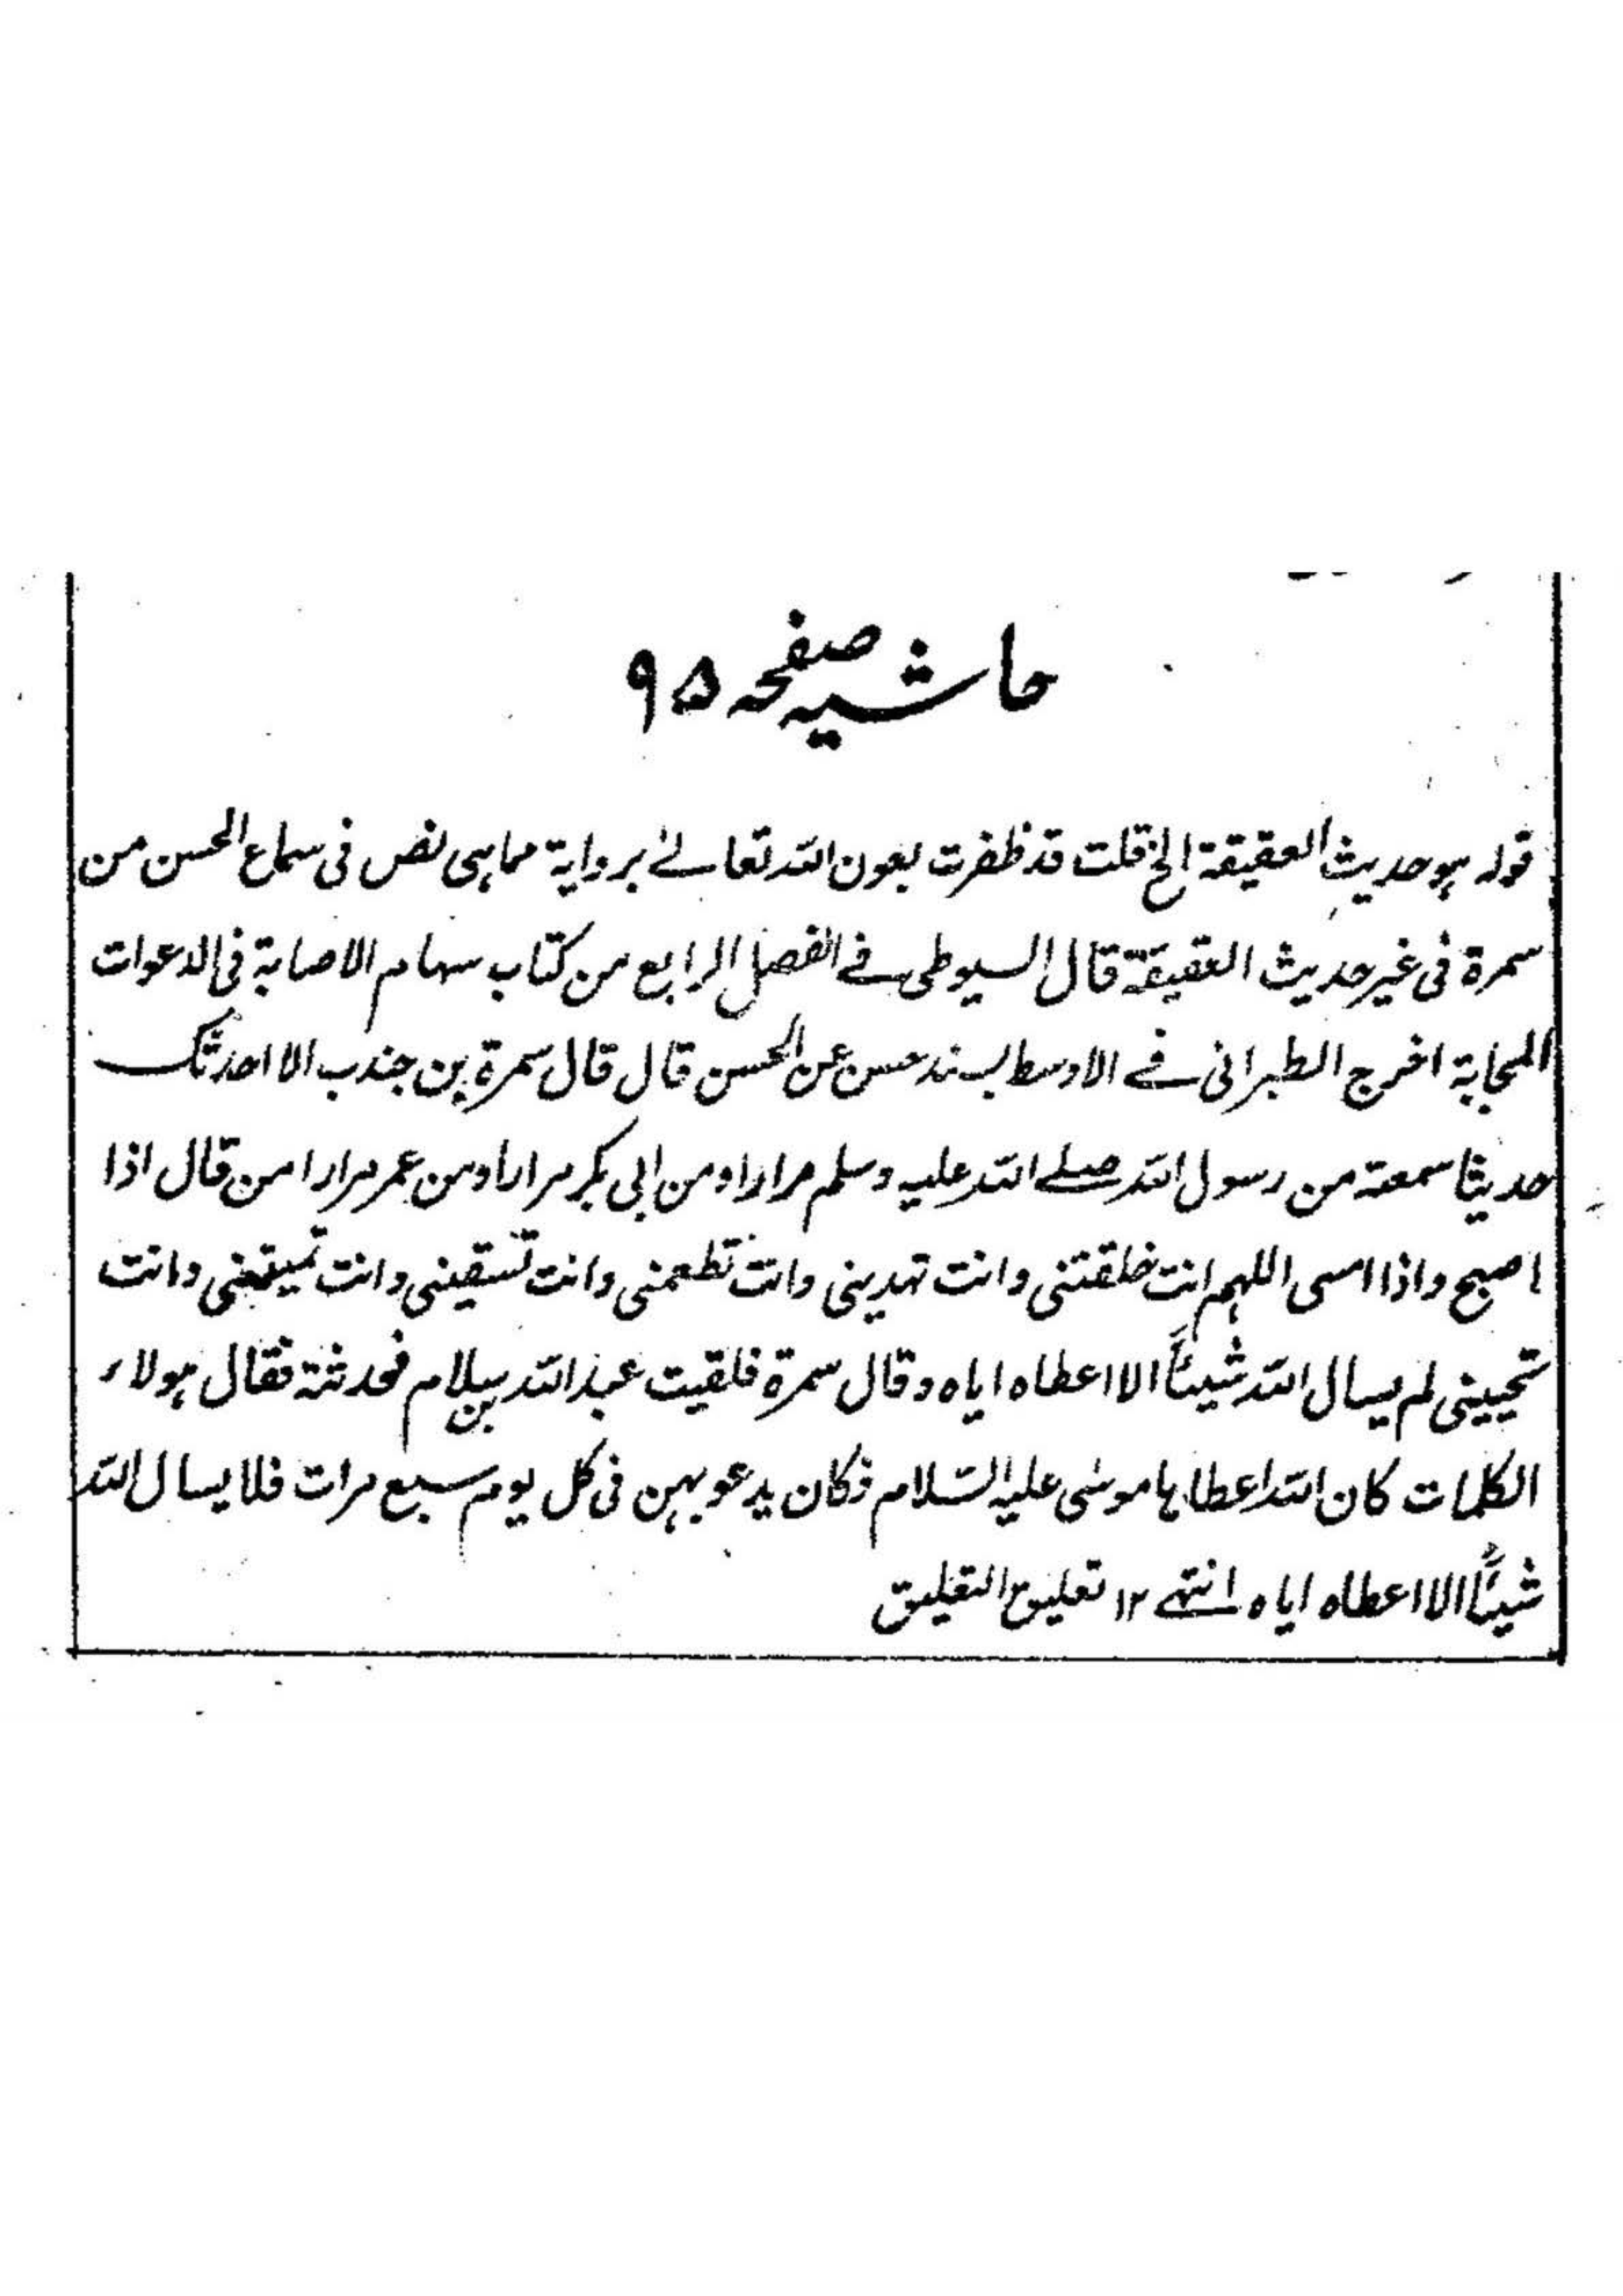 حاشیہ صفحہ ۹۵
قولہ ہو حدیث العقیقۃ الخ قلت قد ظفرت بعون اللہ تعالےٰ بروایۃ مما ہی نص فی سماع الحسن من
سمرۃ فی غیر حدیث العقیقۃ قال السیوطی فے الفصل الرابع من کتاب سہام الاصابۃ فی الدعوات
المجابۃ اخرج الطبرانی فے الاوسط بسند حسن عن الحسن قال قال سمرۃ بن جندب الا احدثک
حدیثا سمعتہ من رسول اللہ صلے اللہ علیہ وسلم مرارا ومن ابی بکر مرارا ومن عمر مرارا من قال اذا
اصبح واذا امسی اللہم انت خلقتنی وانت تہدینی وانت تطعمنی وانت تسقینی وانت تمیتنی وانت
تحیینی لم یسال اللہ شیئاً الا اعطاہ ایاہ وقال سمرۃ فلقیت عبد اللہ بن سلام فحدثتہ فقال ہولاء
الکلمات کان اللہ اعطاہا موسٰی علیہ السّلام فکان یدعو بہن فی کل یوم سبع مرات فلا یسال اللہ
شیئاً الا اعطاہ ایاہ انتہے ۱۲ تعلیق التعلیق